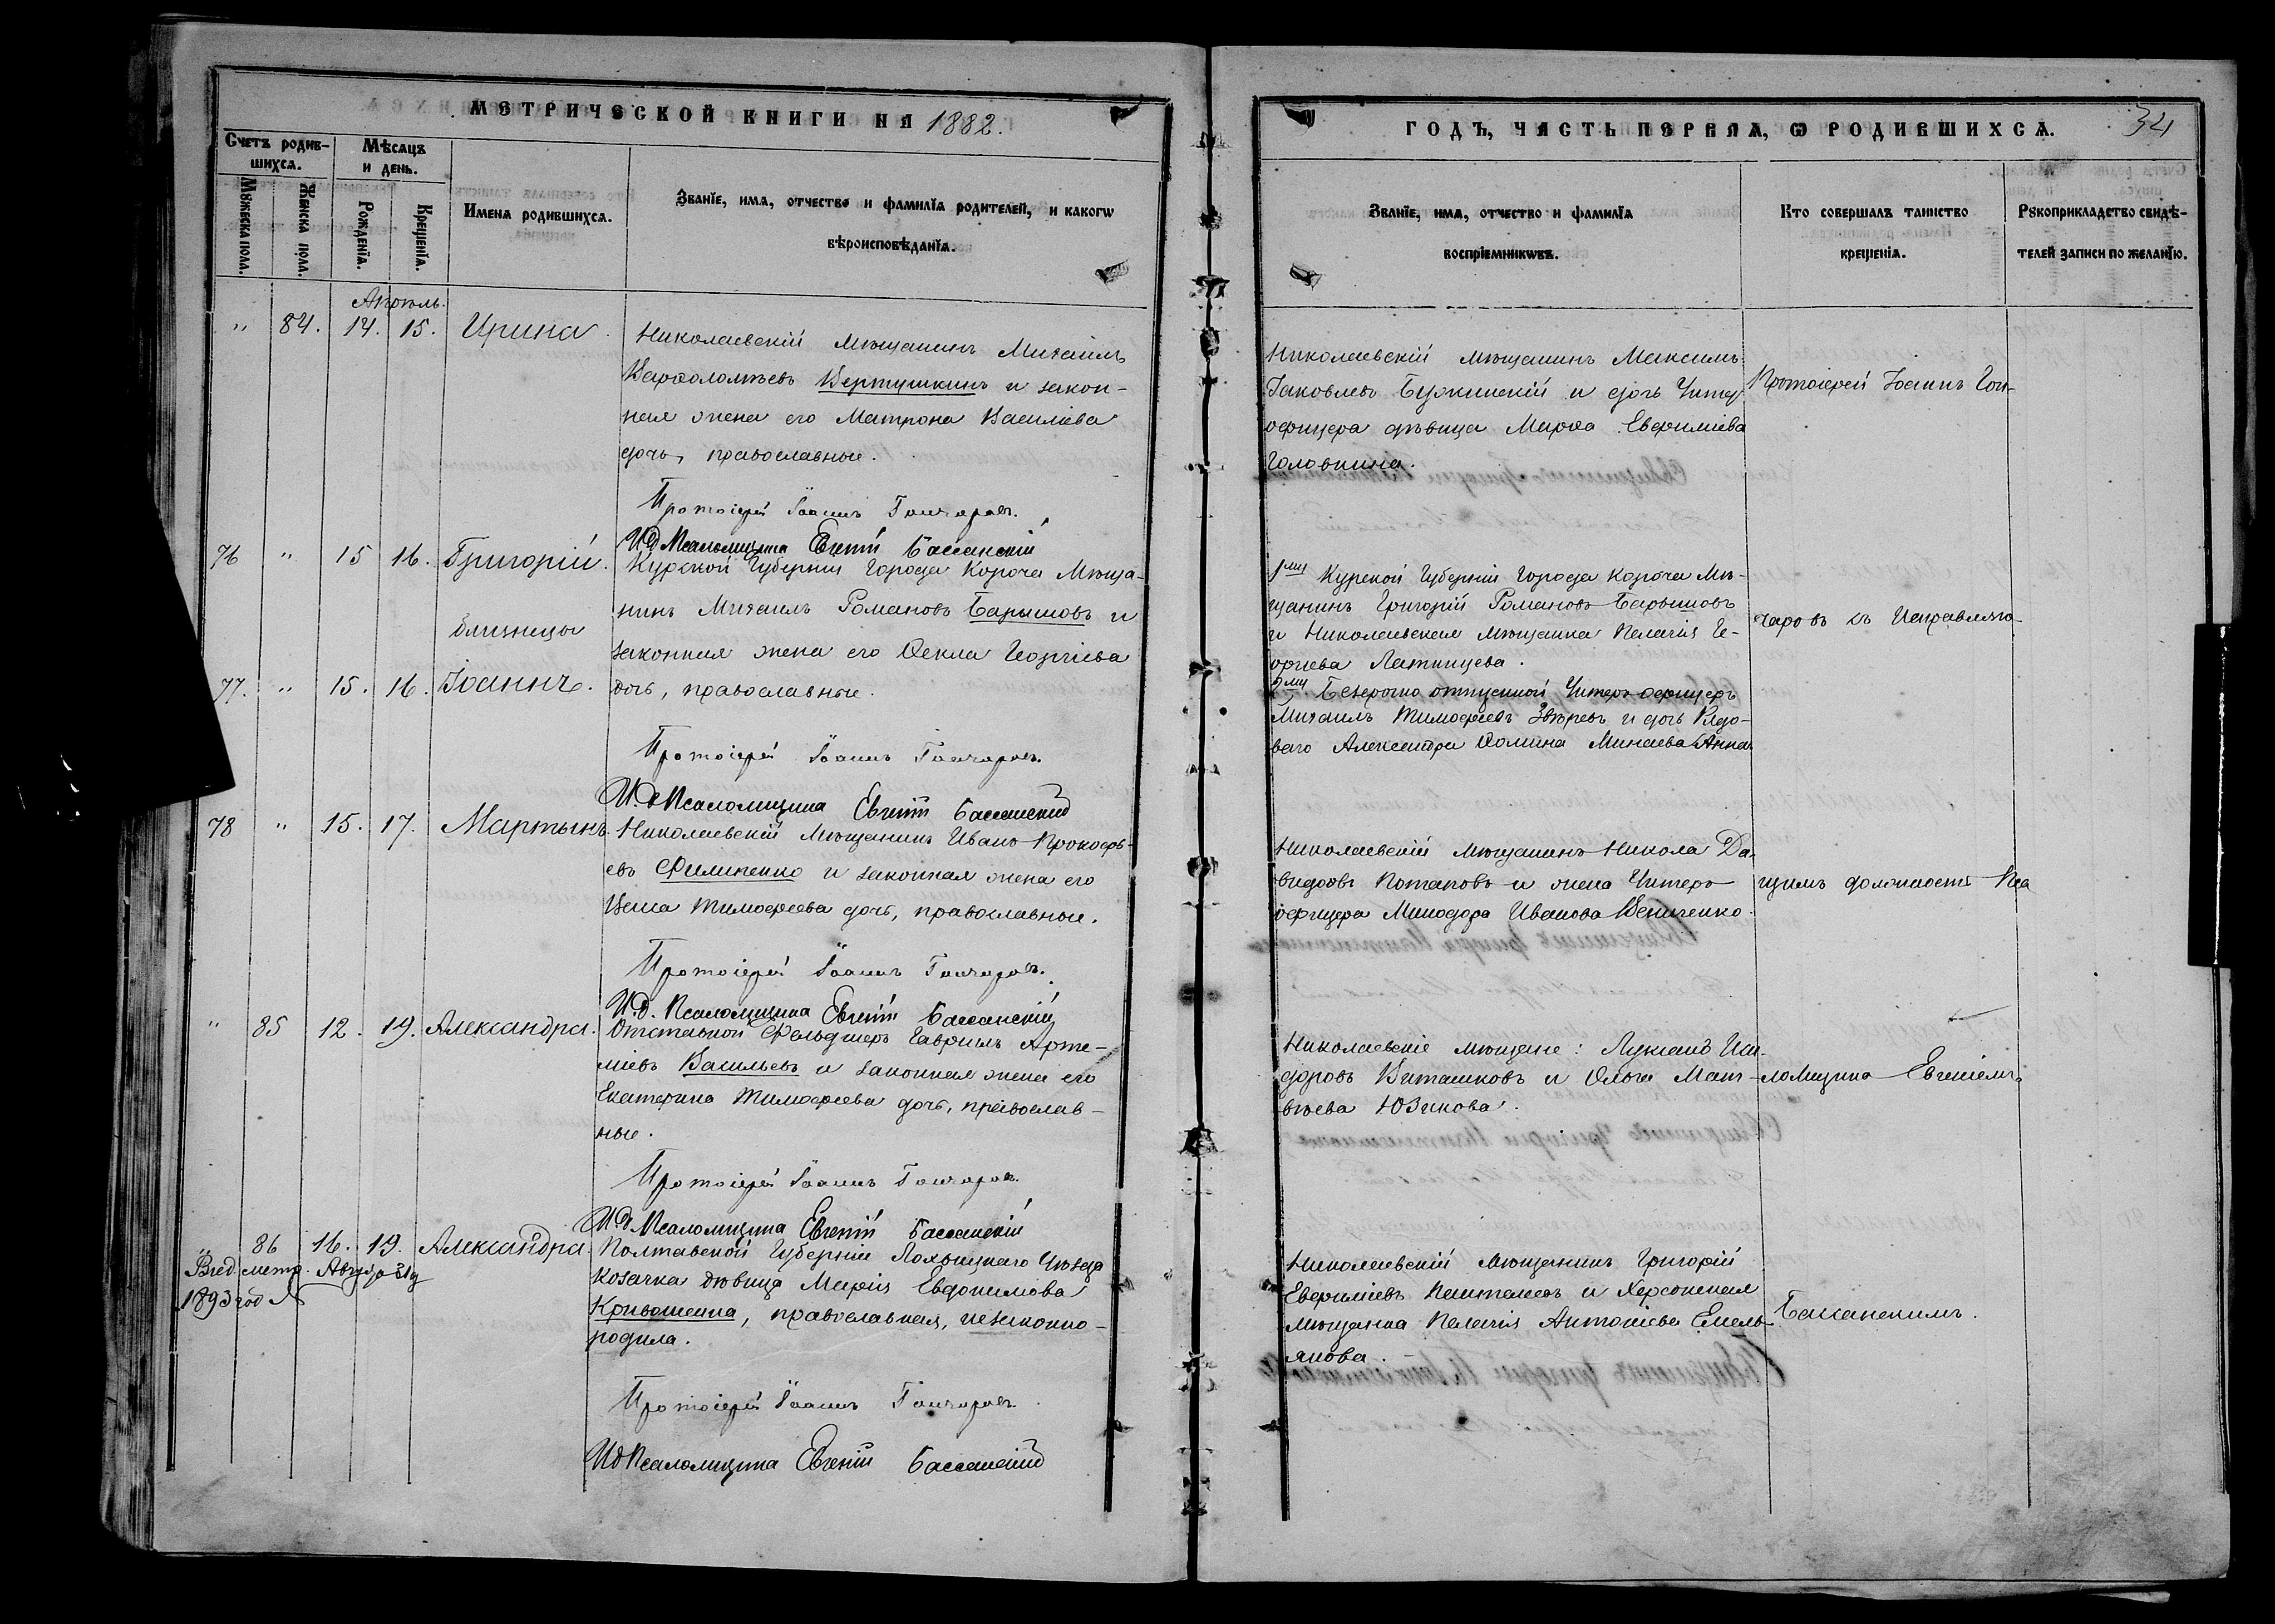 МЕТРИЧЕСКОЙ КНИГИ НА 1882.
Счетъ родившихся.
Мѣсяцъ и день.
Мужеска пола.
Женска пола.
Рожденїя.
Крещенїя.
Имена родившихся.
Званїе, имя, отчество и фамилїя родителей, и какогѡ
вѣроисповѣданїя.
Апрѣль.
" 84. 14. 15. Ирина.
Николаевскій мѣщанинъ Михаилъ
Варѳоломѣевъ Вертушкинъ и закон-
ная жена его Матрона Василіева
дочь, православные.
Протоіерей Іоаннъ Гончаровъ.
И.д. Псаломщика Евгеній Бассанскій
76 " 15 16. Григорій.
близнецы
77. " 15. 16. Іоаннъ.
Курской Губерніи Города Короча Мѣща-
нинъ Михаилъ Романовъ Барышовъ и
законная жена его Ѳекла Георгіева
дочь, православные.
Протоіерей Іоаннъ Гончаровъ.
И.д. Псаломщика Евгеній Бассанскій
78 " 15. 17. Мартынъ.
Николаевскій Мѣщанинъ Иванъ Прокофь-
евъ Филипенко и законная жена его
Васса Тимофеева дочь, православные.
Протоіерей Іоаннъ Гончаровъ.
И.д. Псаломщика Евгеній Бассанскій
" 85 12. 19. Александра.
Отставной Фельдшеръ Гавріилъ Арте-
міевъ Васильевъ и законная жена его
Екатерина Тимофеева дочь, православ-
ные.
Протоіерей Іоаннъ Гончаровъ.
И.д. Псаломщика Евгеній Бассанскій
" 86 16. 19. Александра.
метр. Августа 31 д
1893 год
Полтавской Губерніи Лохвицкаго Уѣзда
Козачка дѣвица Марія Евдокимова
Кривошеина, православная, незаконно-
родила.
Протоіерей Іоаннъ Гончаровъ.
И.д. Псаломщика Евгеній Бассанскій
ГОДЪ, ЧАСТЬ ПЕРВАЯ, Ѡ РОДИВШИХСЯ. 34
Званїе, имя, отчество и фамилїя
воспрїемникѡвъ.
Кто совершалъ таинство
крещенїя.
Рукоприкладство свидѣ-
телей записи по желанїю.
Николаевскій мѣщанинъ Максимъ
Іаковлевъ и дочь Унтер
офицера дѣвица Марѳа Евфиміева
Головкина.
1й Курской Губерніи Города Короча Мѣ-
щанинъ Григорій Романовъ Барышовъ
и Николаевская мѣщанка Пелагія Ге-
оргіева Латынцева.
2й Безсрочно отпускной Унтеръ-офицеръ
Михаилъ Тимофеевъ Звѣревъ и дочь Рядо-
ваго Александра Ѳомина Минаева Анна
Николаевскій мѣщанинъ Никола Да-
видовъ Потаповъ и жена Унтеръ
офицера Минодора Иванова Величенко.
Николаевскіе мѣщане: Лукіанъ Иси-
доровъ Виташковъ и Ольга Мат-
вѣева Юзикова.
Николаевскій Мѣщанинъ Григорій
Евфиміевъ и Херсонская
Мѣщанка Пелагія Антоніева Емель-
янова.
Протоіерей Іоаннъ Гон-
чаровъ съ Исправляю-
щимъ должность Пса
ломщика Евгеніемъ
Бассанскимъ.